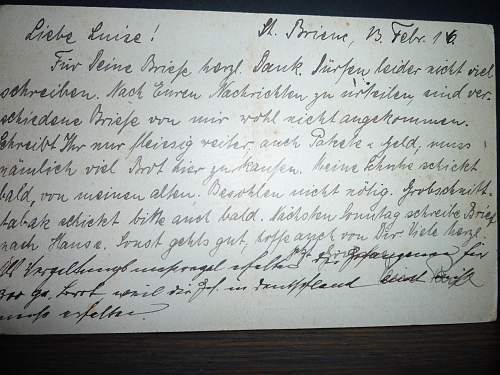 Liebe Luise! St. Brieuc, 13. Febr. 16.
Für Deine Briefe herzl. Dank. Dürfen leider nicht viel
schreiben. Nach Euren Nachrichten zu urteilen, sind ver-
schiedene Briefe von mir wohl nicht angekommen.
Schreibt Ihr nur fleissig weiter, auch Pakete u. Geld, muss
nämlich viel Brot hier zu kaufen. Meine Schuhe schickt
bald, von meinen alten. Besohlen nicht nötig. Grobschnitt-
tabak schickt bitte auch bald. Nächsten Sonntag schreibe Brief
nach Hause. Sonst gehts gut, hoffe auch von Dir. Viele herzl.
Als Vergeltungsmassregel erhalten die Gefangenen hier
300 gr. Brot weil die in Deutschland auch
erhalten.